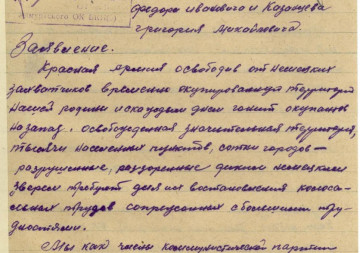 Федора Ивановича и Казанцева
Григория Михайловича.
Заявление.
Красная Армия освободив от немецких
захватчиков временно окупированную территорию
нашей родины и с каждым днем гонит окупантов
на запад. освобожденная значительная территория,
тысячи населенных пунктов, сотни городов—
разрушенные, раззоренные диким немецким
зверем требуют для их востановления колоса-
льных трудов сопряженных с большими тру-
дностями.
Мы как члены коммунистической партии